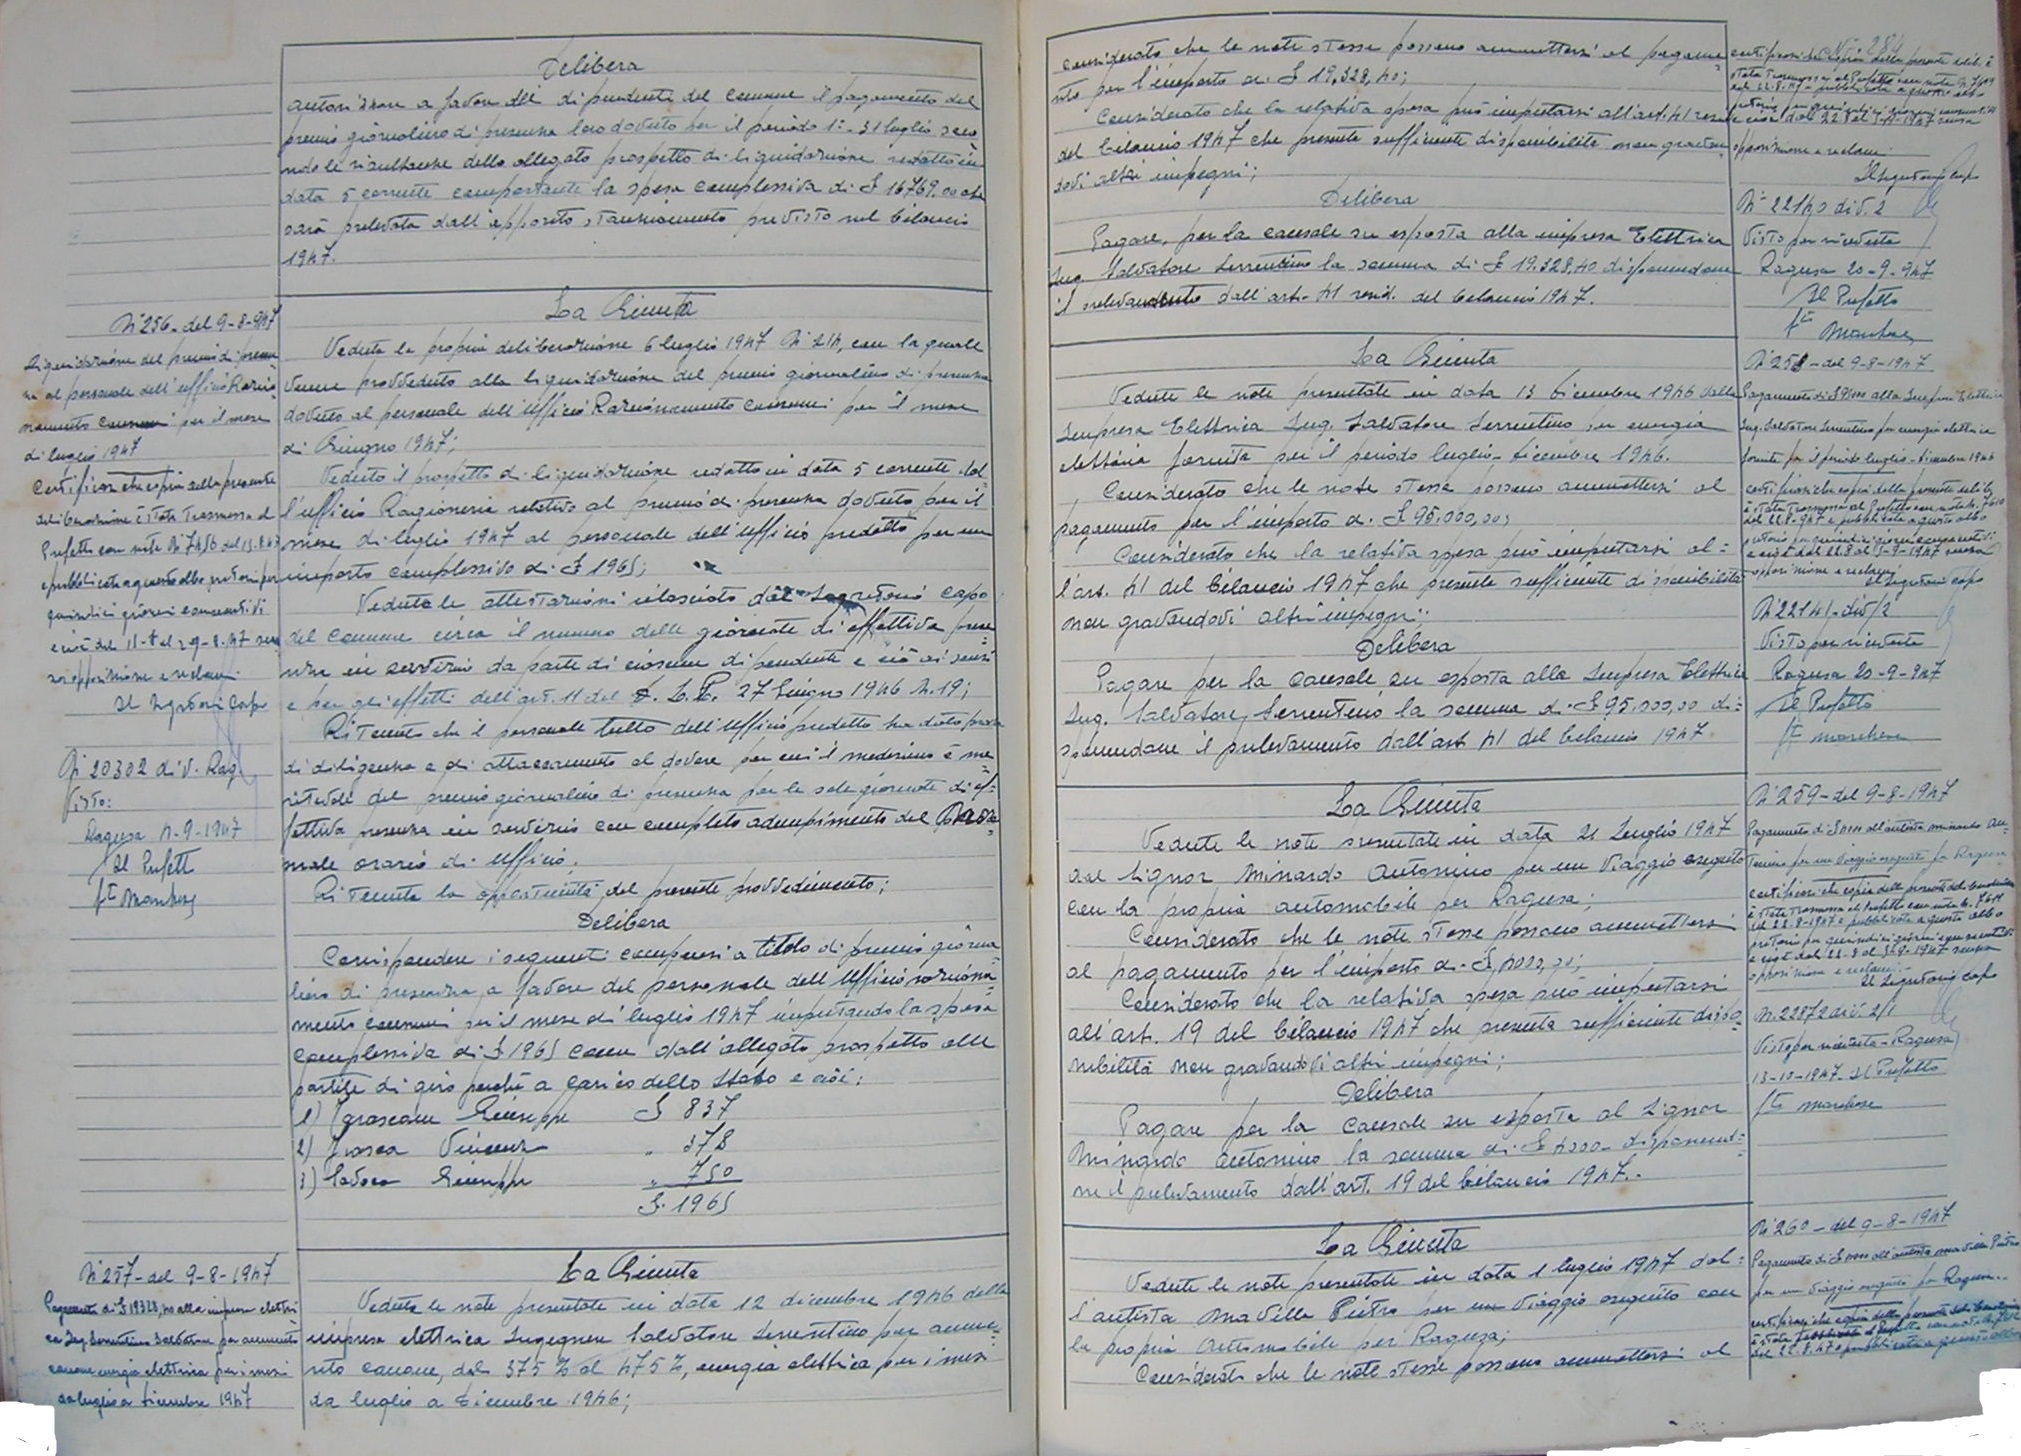 Delibera
autorizzare a favore dei dipendenti del Comune il pagamento del
premio giornaliero di presenza loro dovuto per il periodo 1°-31 luglio seco
ndo le risultanze dello allegato prospetto di liquidazione redatto in
data 5 corrente comportante la spesa complessiva di £ 16769.00 che
sarà prelevata dall'apposito stanziamento previsto nel bilancio
1947.
N° 256 - del 9-8-947
Liquidazione del premio di presen
za al personale dell'ufficio Razio-
namento consumi per il mese
di luglio 1947
Certificasi che copia della presente
deliberazione è stata trasmessa al
Prefetto con nota N° 7456 del 13.8.47
e pubblicata a questo albo pretorio per
quindici giorni consecutivi
e cioè dal 11-8 al 29-8-47 senza
opposizione e reclami
Il Segretario Capo
N° 20302 div. Rag
Visto:
Ragusa 4-9-1947
Il Prefetto
La Giunta
Veduta la propria deliberazione 6 luglio 1947 N° 214, con la quale
venne provveduto alla liquidazione del premio giornaliero di presenza
dovuto al personale dell'ufficio Razionamento consumi per il mese
di Giugno 1947;
Veduto il prospetto di liquidazione redatto in data 5 corrente dal-
l'ufficio Ragioneria relativo al premio di presenza dovuto per il
mese di luglio 1947 al personale dell'ufficio predetto per un
importo complessivo di £ 1965;
Veduta le attestazioni rilasciate dal Segretario Capo
del Comune circa il numero delle giornate di effettiva prese
nza in servizio da parte di ciascun dipendente e ciò ai sensi
e per gli effetti dell'art. 11 del D. L. P. 27 Giugno 1946 N. 19;
Ritenuto che il personale tutto dell'ufficio predetto ha dato prova
di diligenza e di attaccamento al dovere per cui il medesimo è me-
ritevole del premio giornaliero di presenza per le sole giornate di ef-
fettiva presenza in servizio con completo adempimento del nor-
male orario di ufficio.
Ritenuta la opportunità del presente provvedimento;
Delibera
Corrispondere i seguenti compensi a titolo di premio giorna
liero di presenza, a favore del personale dell'ufficio raziona-
mento consumi per il mese di luglio 1947 imputando la spesa
complessiva di £ 1965 come dall'allegato prospetto alle
partite di giro perché a carico dello Stato e cioè:
1) Giuseppe £ 837
2) " 378
3) Giuseppe " 750
£. 1965
N° 257 - del 9-8-1947
Pagamento di £ 19328,40 alla impresa elettri
ca Ing. Serrentino Salvatore per aumento
canone energia elettrica per i mesi
da luglio a dicembre 1947
La Giunta
Vedute le note presentate in data 12 dicembre 1946 dalla
impresa elettrica Ingegnere Salvatore Serrentino per aume-
nto canone, dal 375 % al 475 %, energia elettrica per i mesi
da luglio a dicembre 1946;
N° 284
considerato che le note stesse possono ammettersi al pagame-
nto per l'importo di £ 19,328,40;
Considerato che la relativa spesa può imputarsi all'art. 41
del bilancio 1947 che presenta sufficiente disponibilità non gravan-
dovi altri impegni;
Delibera
Pagare, per la causale su esposta alla impresa Elettrica
Ing. Salvatore Serrentino la somma di £ 19.328,40 disponendone
il prelevamento dall'art. 41 resid. del bilancio 1947.
opposizione e reclami.
Il Segretario Capo
N° 22140 div. 2
Visto per ricevuta
Ragusa 20-9-947
Il Prefetto
La Giunta
Vedute le note presentate in data 13 dicembre 1946 dalla
Impresa Elettrica Ing. Salvatore Serrentino per energia
elettrica fornita per il periodo luglio-dicembre 1946.
Considerato che le note stesse possono ammettersi al
pagamento per l'importo di £ 95.000,00;
Considerato che la relativa spesa può imputarsi al-
l'art. 41 del bilancio 1947 che presenta sufficiente disponibilità
non gravandovi altri impegni;
Delibera
Pagare per la causale su esposta alla Impresa Elettrica
Ing. Salvatore Serrentino la somma di £ 95.000,00 di-
sponendone il prelevamento dall'art 41 del bilancio 1947.
N° 258 - del 9-8-1947
Pagamento di £ 95000 alla Impresa Elettrica
Ing. Salvatore Serrentino per energia elettrica
fornita per il periodo luglio-dicembre 1946
certificasi che copia della presente delib.
è stata trasmessa al Prefetto con nota N. 7610
del 22.8.947 e pubblicata a questo albo
pretorio per quindici giorni consecutivi
opposizione e reclami
Il Segretario Capo
N° 22141 - div/2
Visto per ricevuta
Ragusa 20-9-947
Il Prefetto
La Giunta
Vedute le note presentate in data 21 Luglio 1947
dal Signor Minardo Antonino per un viaggio eseguito
con la propria automobile per Ragusa;
Considerato che le note stesse possono ammettersi
al pagamento per l'importo di £ 4000,00;
Considerato che la relativa spesa può imputarsi
all'art. 19 del bilancio 1947 che presenta sufficiente dispo-
nibilità non gravandovi altri impegni;
Delibera
Pagare per la causale su esposta al Signor
Minardo Antonino la somma di £ 4000 - disponendo-
ne il prelevamento dall'art. 19 del bilancio 1947.
N° 259 - del 9-8-1947
Pagamento di £ 4000 all'autista Minardo An-
tonino per un viaggio eseguito per Ragusa
certificasi che copia della presente deliberazione
è stata trasmessa al Prefetto con nota N. 7611
del 22-8-1947 e pubblicata a questo albo
pretorio per quindici giorni consecutivi
opposizione e reclami.
Il Segretario Capo
N. 22872 div. 2/1
Visto per ricevuta - Ragusa
13-10-1947 - Il Prefetto
La Giunta
Vedute le note presentate in data 1 luglio 1947 dal-
l'autista Mavilla Pietro per un viaggio eseguito con
la propria automobile per Ragusa;
Considerato che le note stesse possono ammettersi al
N° 260 - del 9-8-1947
Pagamento di £ 4000 all'autista Mavilla Pietro
per un viaggio eseguito per Ragusa.
certificasi che copia della presente deliberazione
del 22-8-47 e pubblicata a questo albo